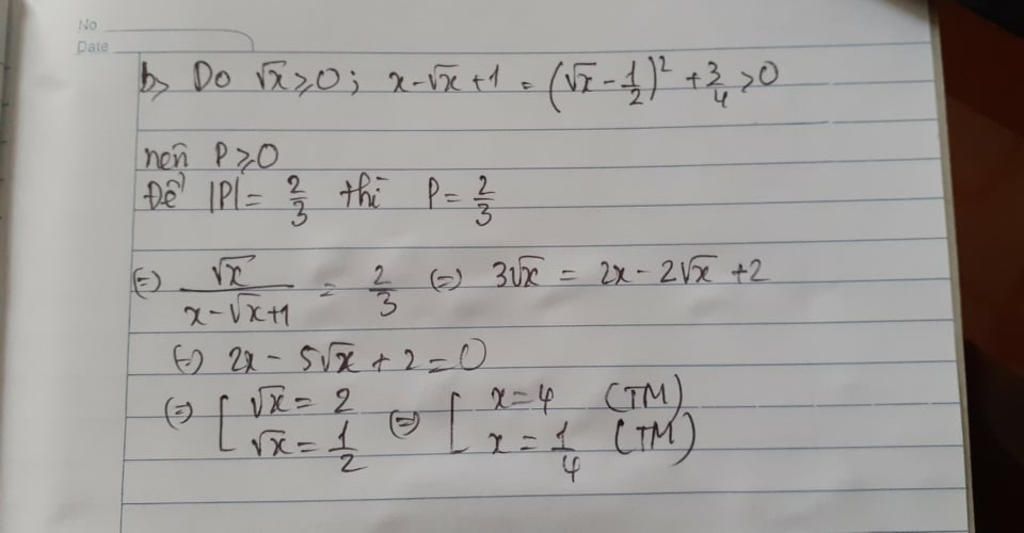 No
Date
b> Do √x ≥ 0; x - √x + 1 = (√x - 1/2)² + 3/4 > 0
nên P ≥ 0
Để |P| = 2/3 thì P = 2/3
(=) √x / (x - √x + 1) = 2/3 (=) 3√x = 2x - 2√x + 2
(=) 2x - 5√x + 2 = 0
(=) [ √x = 2 ; √x = 1/2 (=) [ x = 4 (TM) ; x = 1/4 (TM)